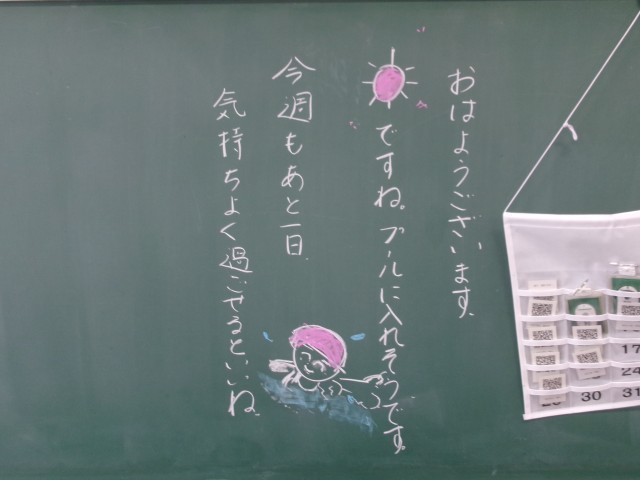 おはようございます。
ですね。プールに入れそうです。
今週もあと一日。
気持ちよく過ごせるといいね。
17
24
30
31